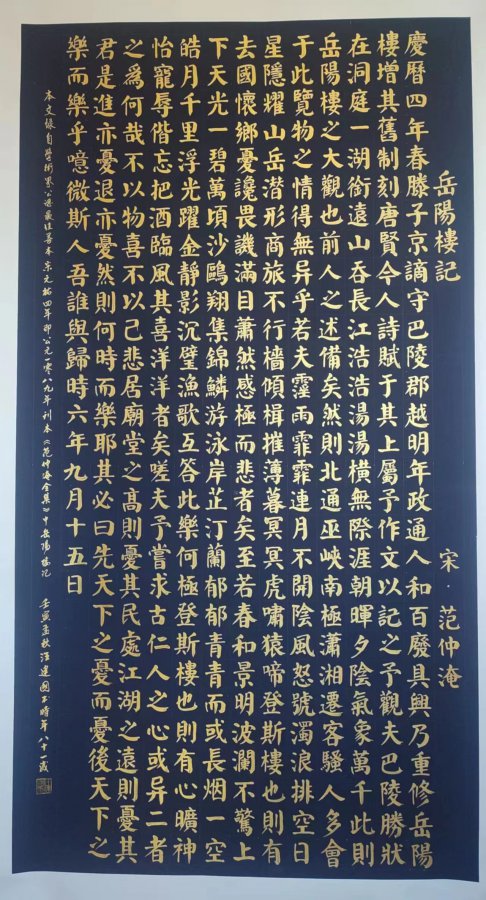 岳陽樓記 宋·范仲淹
慶曆四年春滕子京謫守巴陵郡越明年政通人和百廢具興乃重修岳陽
樓增其舊制刻唐賢今人詩賦于其上屬予作文以記之予觀夫巴陵勝狀
在洞庭一湖銜遠山吞長江浩浩湯湯橫無際涯朝暉夕陰氣象萬千此則
岳陽樓之大觀也前人之述備矣然則北通巫峽南極瀟湘遷客騷人多會
于此覽物之情得無异乎若夫霪雨霏霏連月不開陰風怒號濁浪排空日
星隱耀山岳潜形商旅不行檣傾楫摧薄暮冥冥虎嘯猿啼登斯樓也則有
去國懷鄉憂讒畏譏滿目蕭然感極而悲者矣至若春和景明波瀾不驚上
下天光一碧萬頃沙鷗翔集錦鱗游泳岸芷汀蘭郁郁青青而或長烟一空
皓月千里浮光躍金靜影沉璧漁歌互答此樂何極登斯樓也則有心曠神
怡寵辱偕忘把酒臨風其喜洋洋者矣嗟夫予嘗求古仁人之心或异二者
之爲何哉不以物喜不以己悲居廟堂之高則憂其民處江湖之遠則憂其
君是進亦憂退亦憂然則何時而樂耶其必曰先天下之憂而憂後天下之
樂而樂乎噫微斯人吾誰與歸時六年九月十五日
本文録自學術界公認最佳善本宋元祐四年即公元一零八九年刊本《范仲淹全集》中岳陽樓記 壬寅孟秋汪建國书時年八十一歲